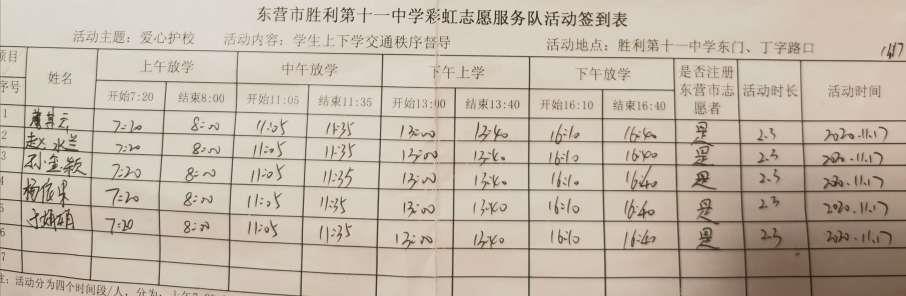 东营市胜利第十一中学彩虹志愿服务队活动签到表
活动主题：爱心护校 活动内容：学生上下学交通秩序督导 活动地点：胜利第十一中学东门、丁字路口
项目 姓名 上午放学 中午放学 下午上学 下午放学 是否注册东营市志愿者 活动时长 活动时间
序号 开始7:20 结束8:00 开始11:05 结束11:35 开始13:00 结束13:40 开始16:10 结束16:40
1 7:20 8:00 11:05 11:35 13:00 13:40 16:10 16:40 是 2.3 2020.11.17
2 赵水兰 7:20 8:00 11:05 11:35 13:00 13:40 16:10 16:40 是 2.3 2020.11.17
3 孙金颖 7:20 8:00 11:05 11:35 13:00 13:40 16:10 16:40 是 2.3 2020.11.17
4 7:20 8:00 11:05 11:35 13:00 13:40 16:10 16:40 是 2.3 2020.11.17
5 7:20 8:00 11:05 11:35 13:00 13:40 16:10 16:40 是 2.3 2020.11.17
6
7
注：活动分为四个时间段/人，分为：上午7